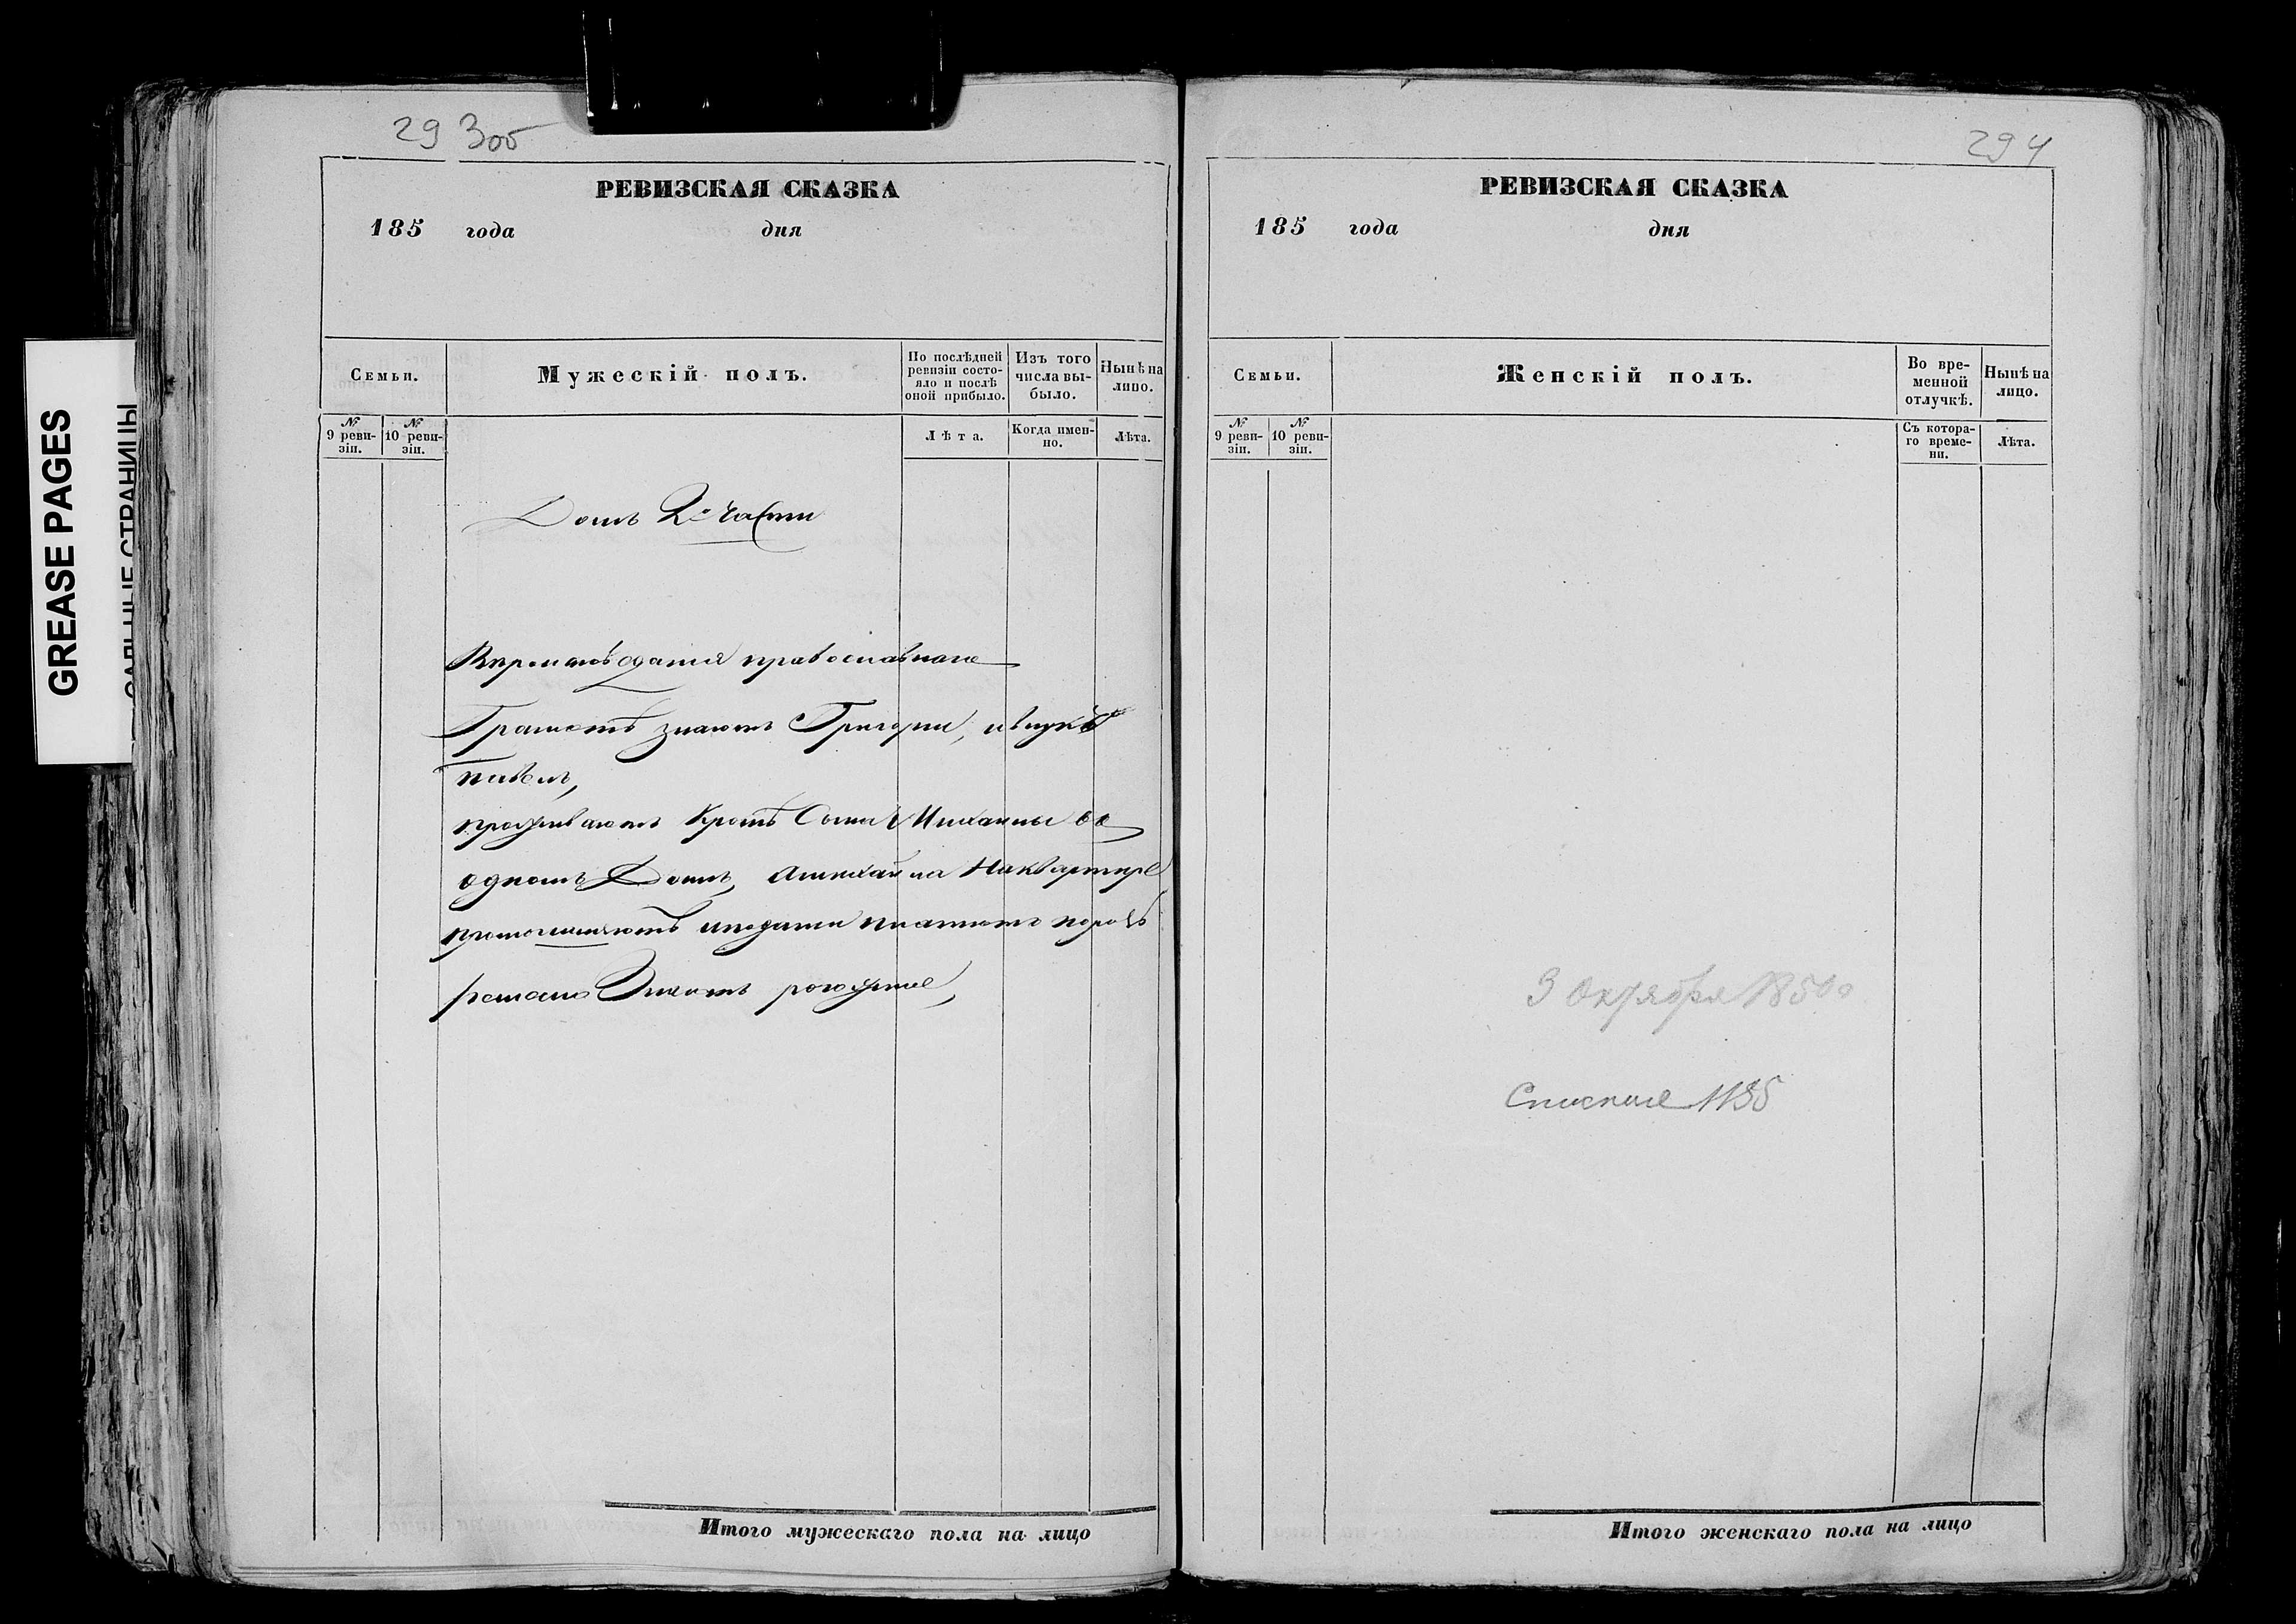 GREASE PAGES
САЛЬНЫЕ СТРАНИЦЫ
293об
РЕВИЗСКАЯ СКАЗКА
185 года дня
Семьи.
Мужескій полъ.
По послѣдней ревизіи состояло и послѣ оной прибыло.
Изъ того числа выбыло.
Нынѣ на лицо.
№ 9 ревизіи.
№ 10 ревизіи.
Лѣта.
Когда именно.
Лѣта.
Домъ 2й части
православнаго
Грамотѣ знаютъ Григорій, ивнукъ
павелъ,
проживаютъ Кромѣ Сына Михаилы во
одномъ Домѣ, амихайла Наквартире
иподати платютъ
Знаютъ
Итого мужескаго пола на лицо
294
РЕВИЗСКАЯ СКАЗКА
185 года дня
Семьи.
Женскій полъ.
Во временной отлучкѣ.
Нынѣ на лицо.
№ 9 ревизіи.
№ 10 ревизіи.
Съ котораго времени.
Лѣта.
3 Октября
Итого женскаго пола на лицо